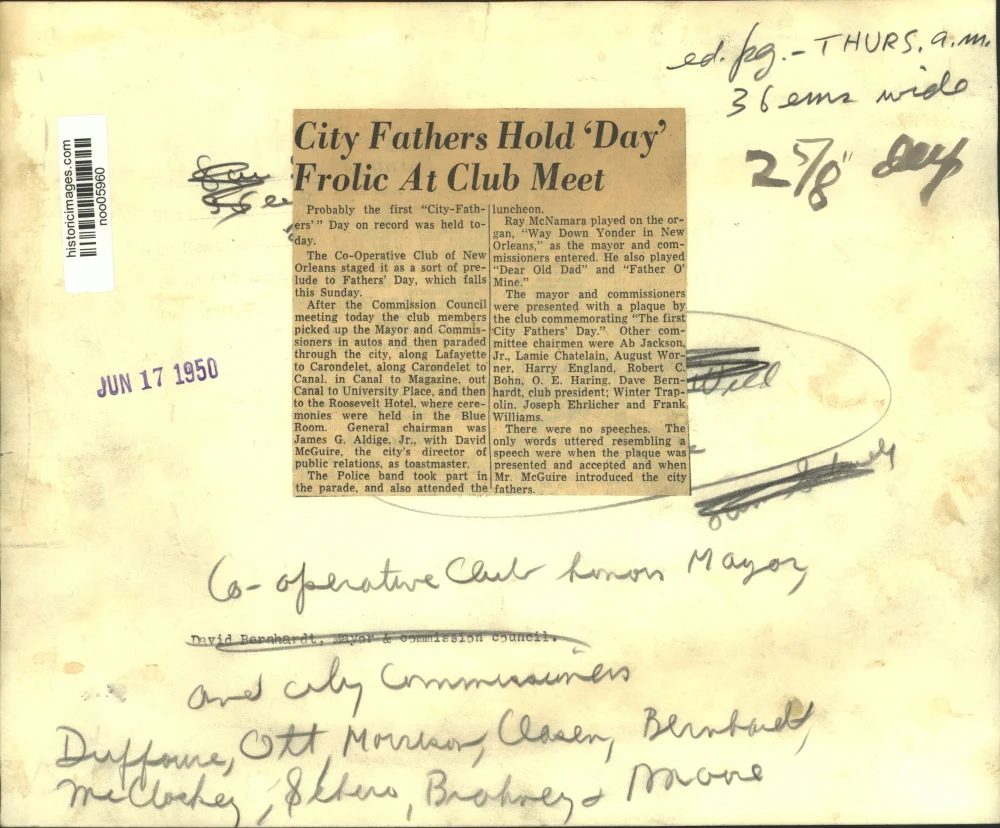 ed. pg. - THURS. a.m.
36 ems wide
2 5/8" deep
historicimages.com
noo05960
City Fathers Hold 'Day'
Frolic At Club Meet
Probably the first "City-Fath-
ers'" Day on record was held to-
day.
The Co-Operative Club of New
Orleans staged it as a sort of pre-
lude to Fathers' Day, which falls
this Sunday.
After the Commission Council
meeting today the club members
picked up the Mayor and Commis-
sioners in autos and then paraded
through the city, along Lafayette
to Carondelet, along Carondelet to
Canal, in Canal to Magazine, out
Canal to University Place, and then
to the Roosevelt Hotel, where cere-
monies were held in the Blue
Room. General chairman was
James G. Aldige, Jr., with David
McGuire, the city's director of
public relations, as toastmaster.
The Police band took part in
the parade, and also attended the
luncheon.
Ray McNamara played on the or-
gan, "Way Down Yonder in New
Orleans," as the mayor and com-
missioners entered. He also played
"Dear Old Dad" and "Father O'
Mine."
The mayor and commissioners
were presented with a plaque by
the club commemorating "The first
City Fathers' Day." Other com-
mittee chairmen were Ab Jackson,
Jr., Lamie Chatelain, August Wor-
ner, Harry England, Robert C.
Bohn, O. E. Haring, Dave Bern-
hardt, club president; Winter Trap-
olin, Joseph Ehrlicher and Frank
Williams.
There were no speeches. The
only words uttered resembling a
speech were when the plaque was
presented and accepted and when
Mr. McGuire introduced the city
fathers.
JUN 17 1950
Co-operative Club honors Mayor,
David Bernhardt, Mayor & commission council.
and city Commissioners
Duffourc, Ott, Morrison, Clasen, Bernhardt,
McCloskey, Schiro, Brahney & Moore